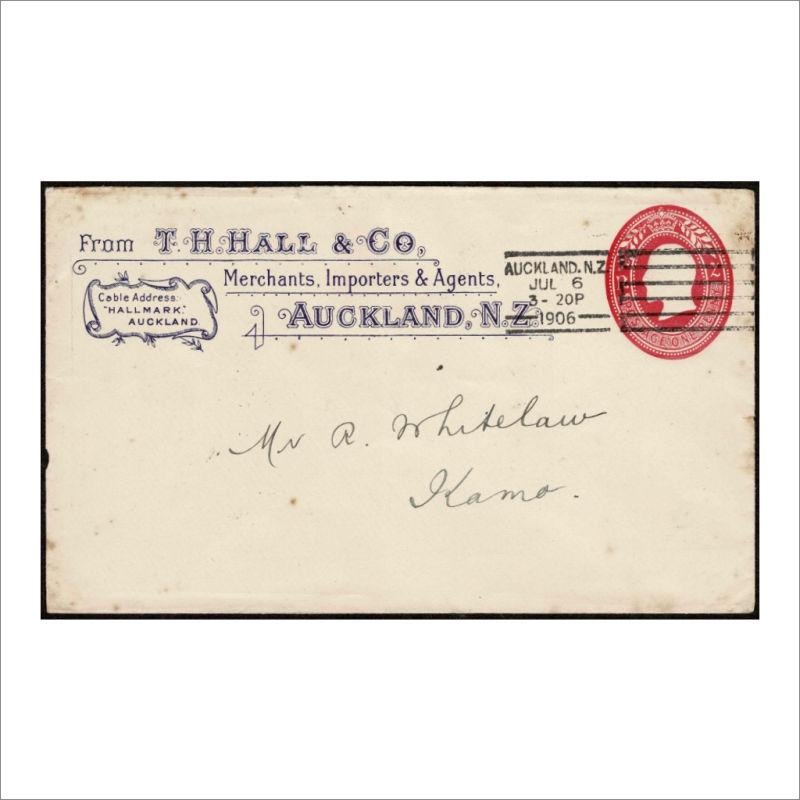 From T. H. HALL & CO,
Merchants, Importers & Agents,
AUCKLAND, N.Z.
Cable Address:
"HALLMARK"
AUCKLAND
AUCKLAND. N.Z.
JUL 6
3-20P
1906
POSTAGE ONE PENNY
Mr R. Whitelaw
Kamo.